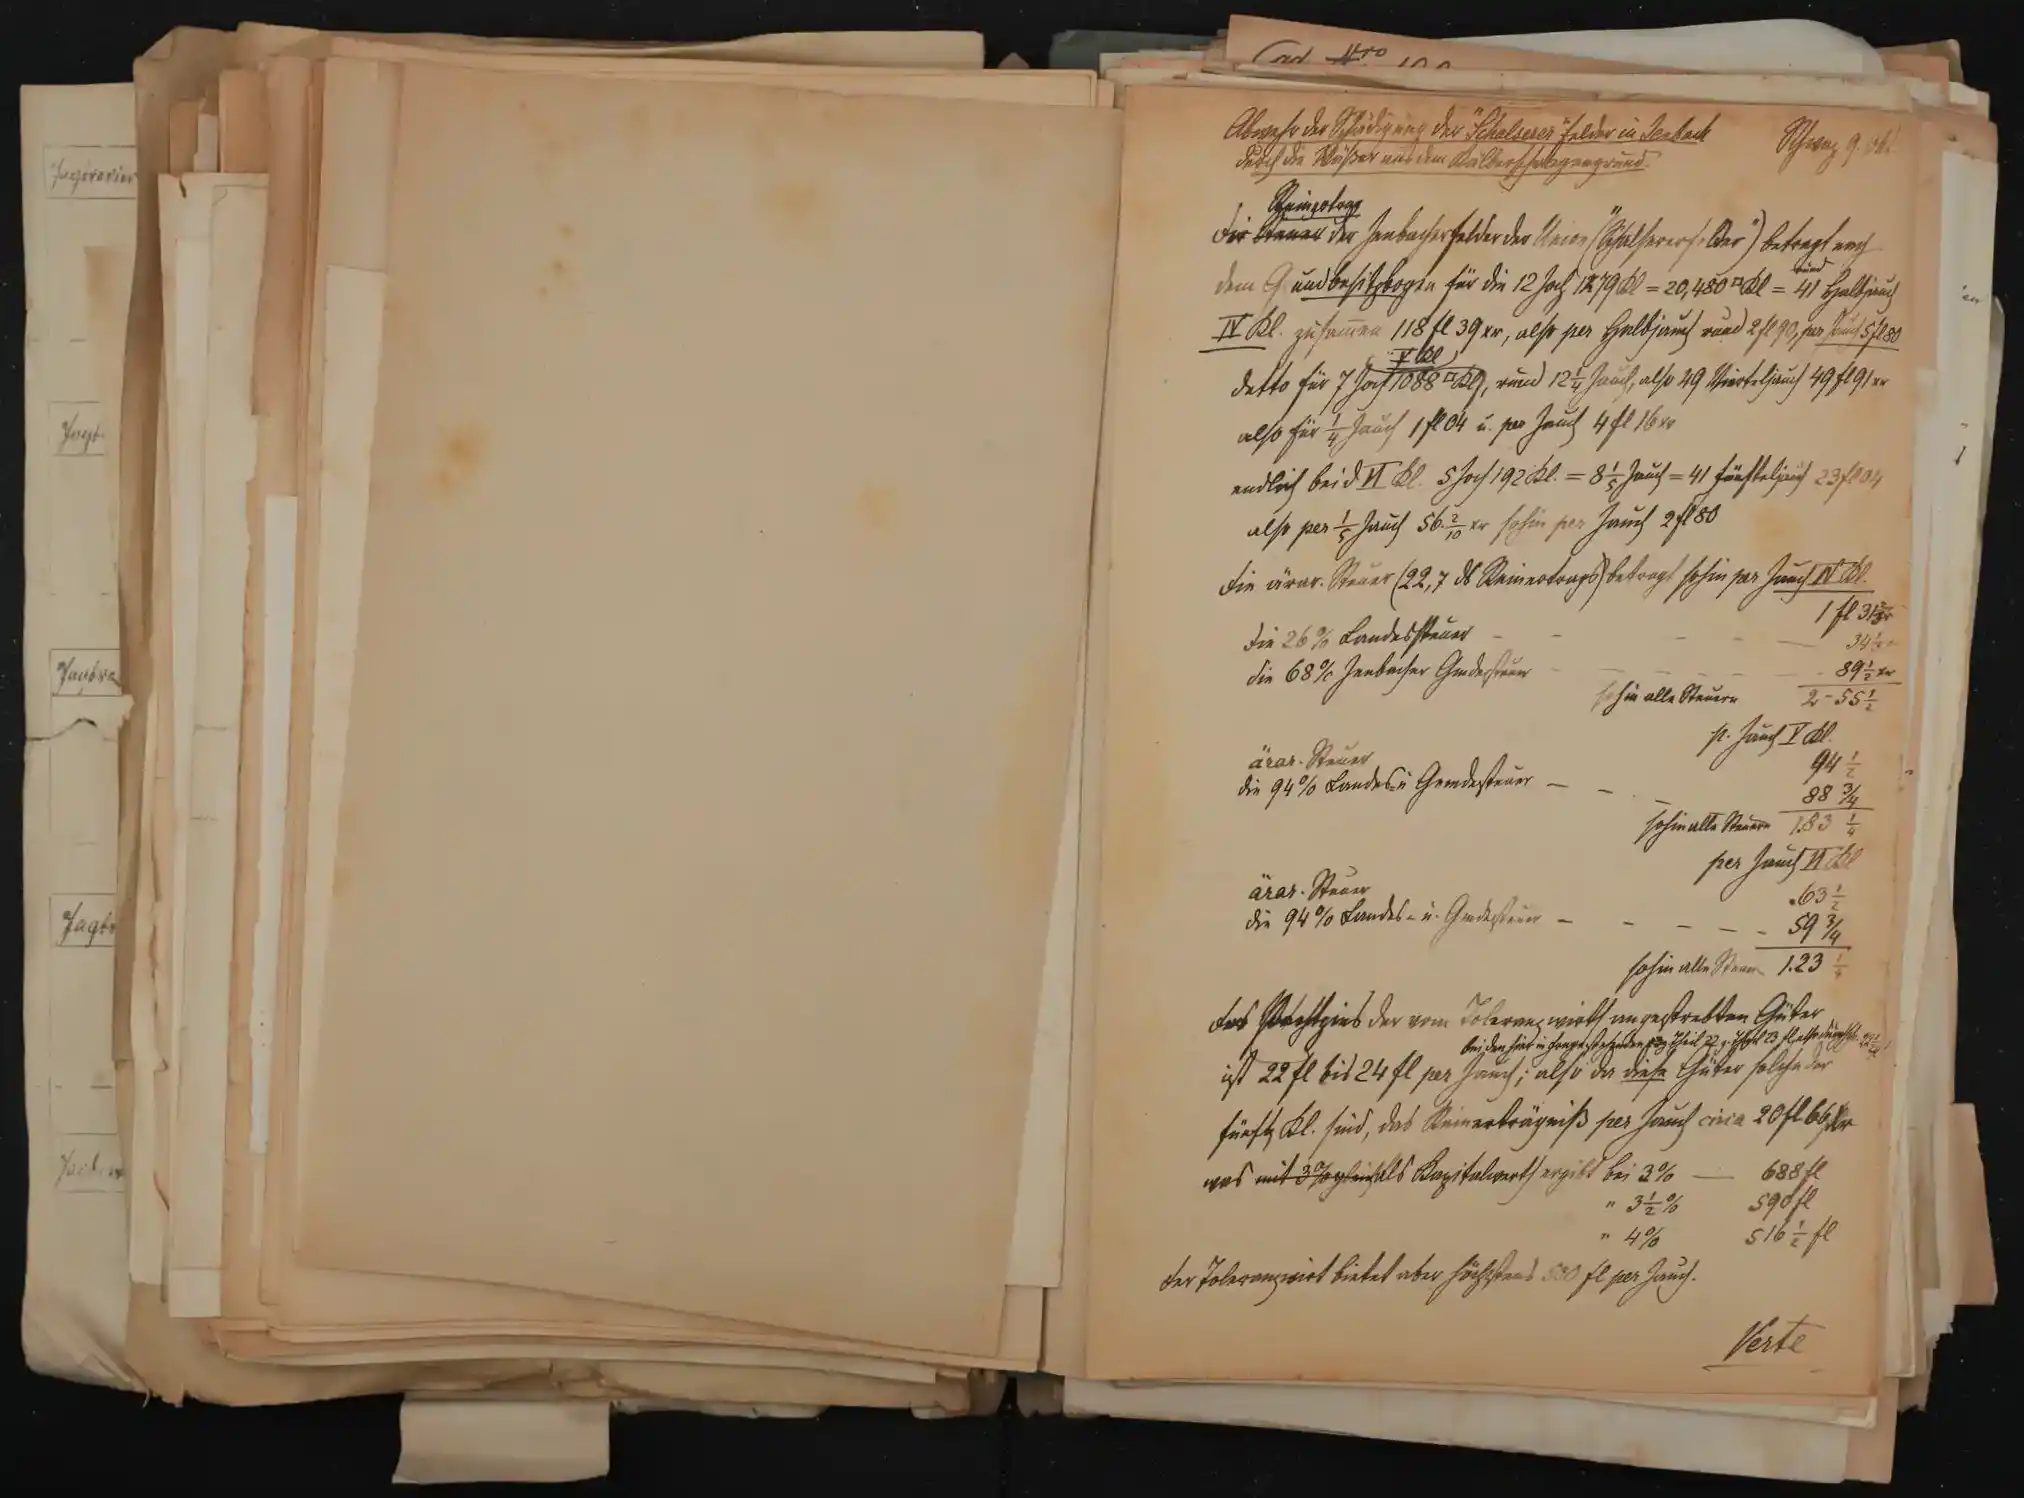 Jagdrevier
Jagd-
Jagdbe
Jagd
Cad. Nro 100
Abwehr der Schädigung der "Schalserer" Felder in Jenbach
durch die Wässer aus dem
Schwaz 9.
Reinertrag
Die Steuer der Jenbacher Felder der Union ("Schalsererfelder") betragt nach
dem Grundbesitzbogen für die 12 Joch 1279 Kl = 20,480 □Kl = rund 41 Halbjauch
IV Kl. zusammen 118 fl 39 xr, also per Halbjauch rund 2 fl 90, per Jauch 5 fl 80
V Kl
detto für 7 Joch 1088 □Kl, rund 12 1/4 Jauch, also 49 Vierteljauch 49 fl 91 xr
also für 1/4 Jauch 1 fl 04 u. per Jauch 4 fl 16 xr
endlich bei d VI Kl. 5 Joch 192 Kl. = 8 1/5 Jauch = 41 Fünfteljauch 23 fl 04
also per 1/5 Jauch 56 2/10 xr sohin per Jauch 2 fl 80
Die ärar. Steuer (22,7 ds Reinertrags) betragt sohin per Jauch IV Kl.
1 fl 31
die 26 % Landessteuer - - - - 34
die 68 % Jenbacher Gmdesteuer - - - - 89 1/2 xr
sohin alle Steuern 2 - 55 1/2
p. Jauch V Kl.
ärar. Steuer 94 1/2
die 94 % Landes- u Gemdesteuer - - - 88 3/4
sohin alle Steuern 1.83 1/4
per Jauch VI Kl
ärar. Steuer .63 1/2
die 94 % Landes- u. Gmdesteuer - - - - - 59 3/4
sohin alle Steuern 1.23 1/4
Das Pachtzins der vom Toleranzwirth angestrebten Güter
bei den hier in Frage stehenden Theil 22 23 fl, also durchschn. 22 1/2
ist 22 fl bis 24 fl per Jauch; also da diese Güter solche der
fünften Kl. sind, das Reinerträgniß per Jauch circa 20 fl 66 xr
was mit 3% als Kapitalwerth ergibt bei 3% — 688 fl
" 3 1/2 % 590 fl
" 4 % 516 1/2 fl
Der Toleranzwirt bietet aber höchstens 500 fl per Jauch.
Verte